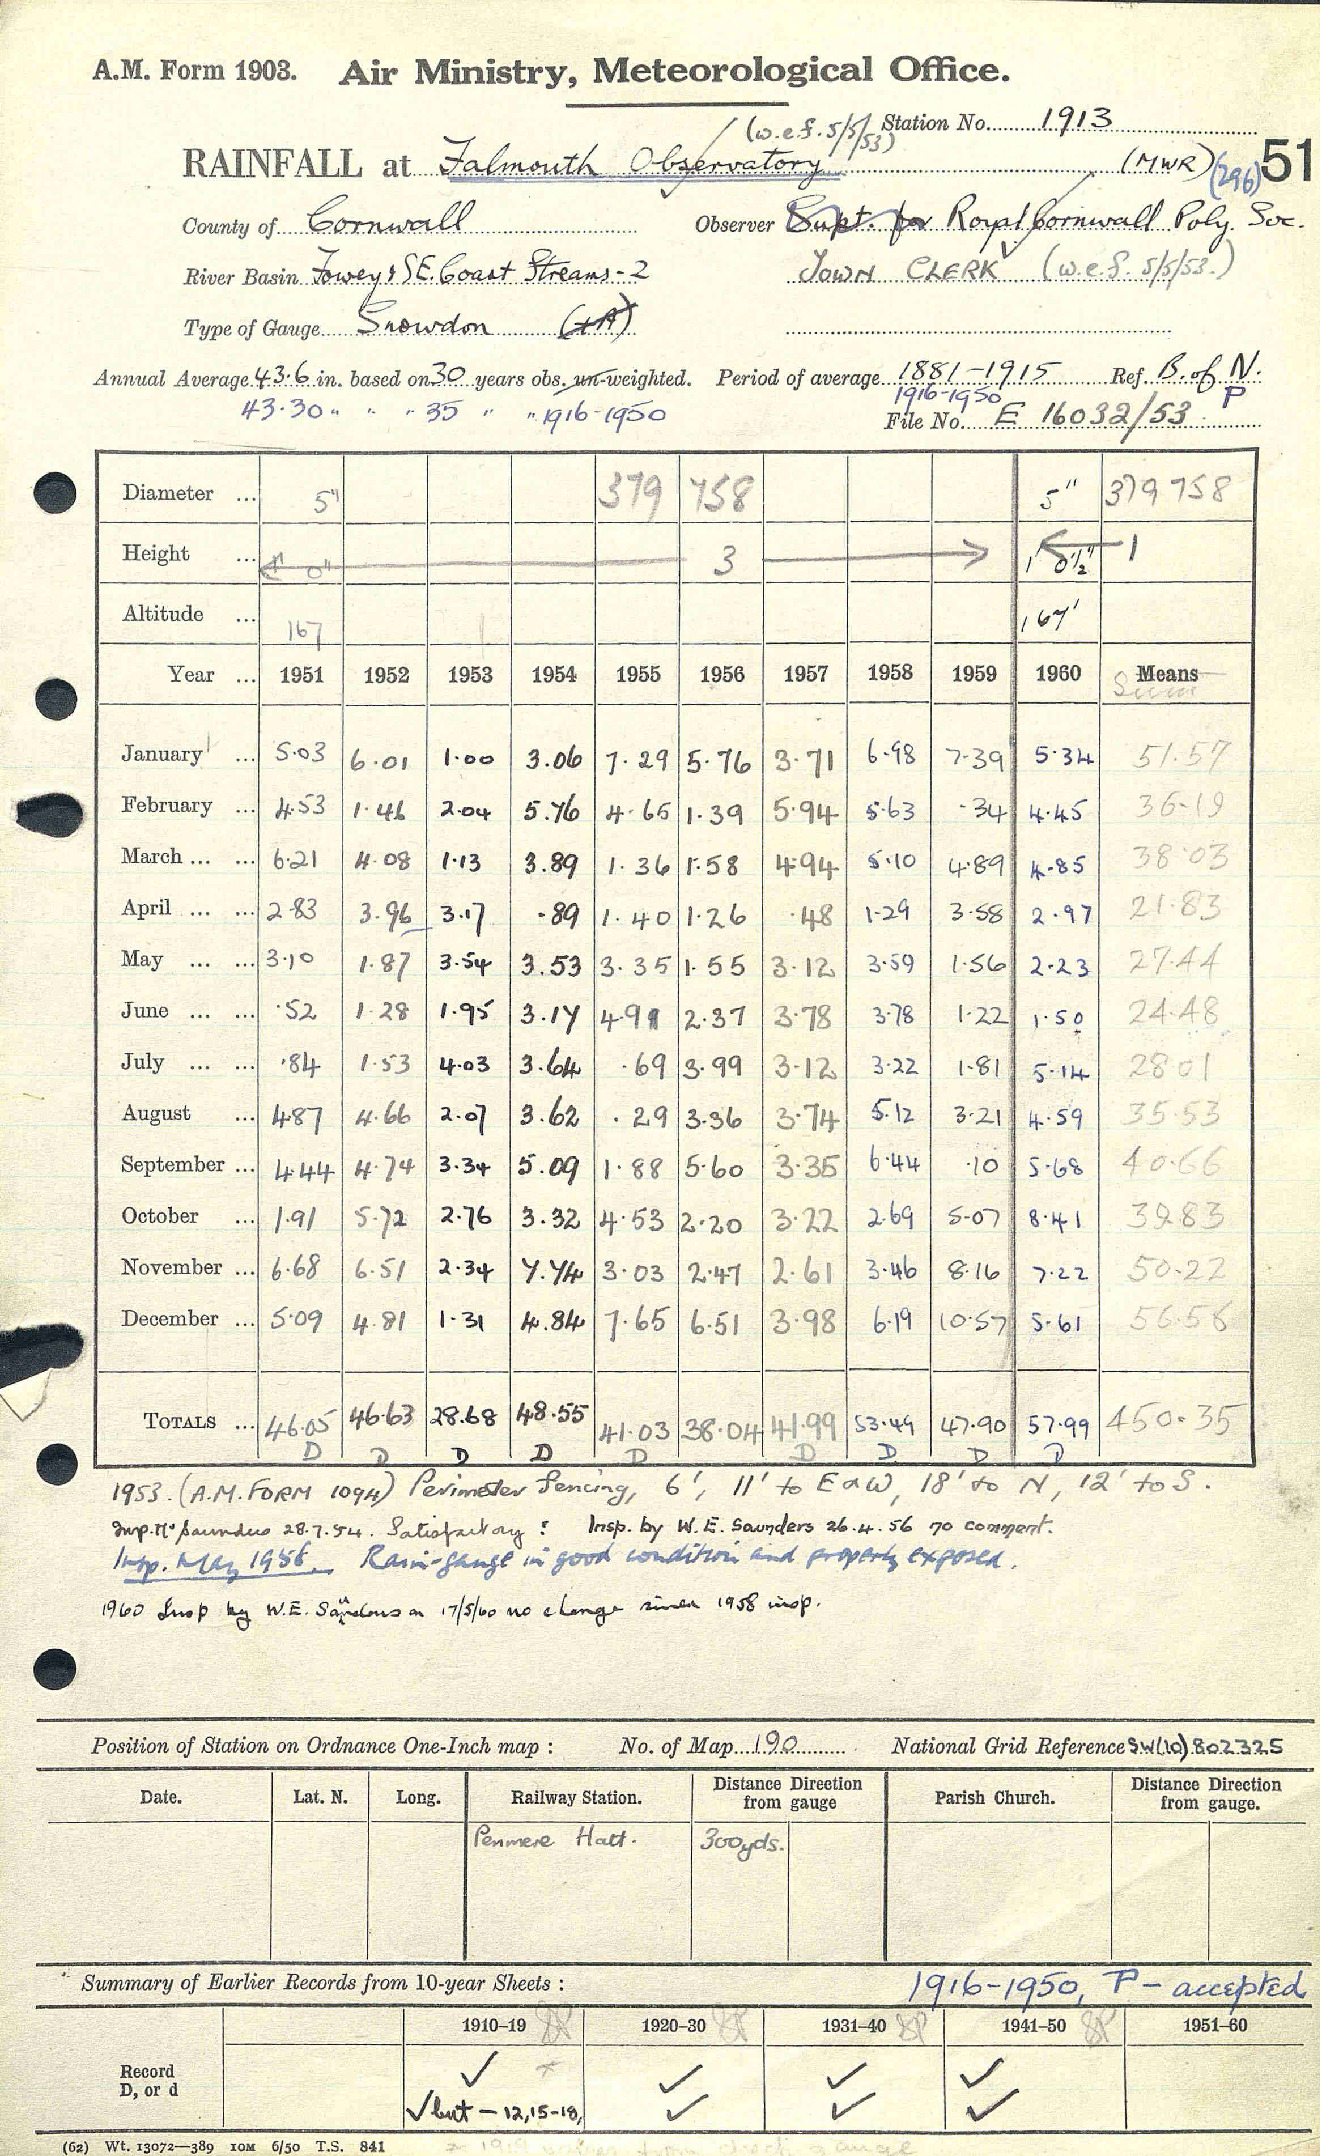 A.M. Form 1903. Air Ministry, Meteorological Office.
(w.e.f. 5/5/53) Station No. 1913
RAINFALL at Falmouth Observatory (MWR) (296) 51
County of Cornwall Observer Supt. for Royal Cornwall Poly. Soc.
River Basin Fowey & SE. Coast Streams - 2 TOWN CLERK (w.e.f. 5/5/53.)
Type of Gauge Snowdon (+A)
Annual Average 43.6 in. based on 30 years obs. un-weighted. Period of average 1881-1915 Ref. B. of N.
43.30 " " " 35 " " 1916-1950 1916-1950 P
File No. E 16032/53
Diameter ... 5" 379 758 5" 379758
Height ... 1' 0" 3 1' 0½" 1
Altitude ... 167 167'
Year ... 1951 1952 1953 1954 1955 1956 1957 1958 1959 1960 Means Sum
January 5.03 6.01 1.00 3.06 7.29 5.76 3.71 6.98 7.39 5.34 51.57
February ... 4.53 1.46 2.04 5.76 4.65 1.39 5.94 5.63 .34 4.45 36.19
March ... ... 6.21 4.08 1.13 3.89 1.36 1.58 4.94 5.10 4.89 4.85 38.03
April ... ... 2.83 3.96 3.17 .89 1.40 1.26 .48 1.29 3.58 2.97 21.83
May ... ... 3.10 1.87 3.54 3.53 3.35 1.55 3.12 3.59 1.56 2.23 27.44
June ... ... .52 1.28 1.95 3.14 4.91 2.37 3.78 3.78 1.22 1.50 24.48
July ... ... .84 1.53 4.03 3.64 .69 3.99 3.12 3.22 1.81 5.14 28.01
August ... 4.87 4.66 2.07 3.62 .29 3.36 3.74 5.12 3.21 4.59 35.53
September ... 4.44 4.74 3.34 5.09 1.88 5.60 3.35 6.44 .10 5.68 40.66
October ... 1.91 5.72 2.76 3.32 4.53 2.20 3.22 2.69 5.07 8.41 39.83
November ... 6.68 6.51 2.34 7.74 3.03 2.47 2.61 3.46 8.16 7.22 50.22
December ... 5.09 4.81 1.31 4.84 7.65 6.51 3.98 6.19 10.57 5.61 56.56
TOTALS ... 46.05 46.63 28.68 48.55 41.03 38.04 41.99 53.49 47.90 57.99 450.35
D D D D D D D D D
1953. (A.M. FORM 1094) Perimeter Fencing, 6', 11' to E & W, 18' to N, 12' to S.
Insp. Mr Saunders 28.7.54. Satisfactory. Insp. by W.E. Saunders 26.4.56 no comment.
Insp. May 1958. Rain-gauge in good condition and properly exposed.
1960 Insp by W.E. Saunders on 17/5/60 no change since 1958 insp.
Position of Station on Ordnance One-Inch map : No. of Map 190 National Grid Reference SW(10) 802325
Date. Lat. N. Long. Railway Station. Distance Direction from gauge Parish Church. Distance Direction from gauge.
Penmere Halt. 300yds.
Summary of Earlier Records from 10-year Sheets : 1916-1950, P - accepted
1910-19 1920-30 1931-40 1941-50 1951-60
Record ✓ ✓ ✓ ✓
D, or d ✓ but - 12, 15-18, ✓ ✓ ✓
(62) Wt. 13072—389 10M 6/50 T.S. 841